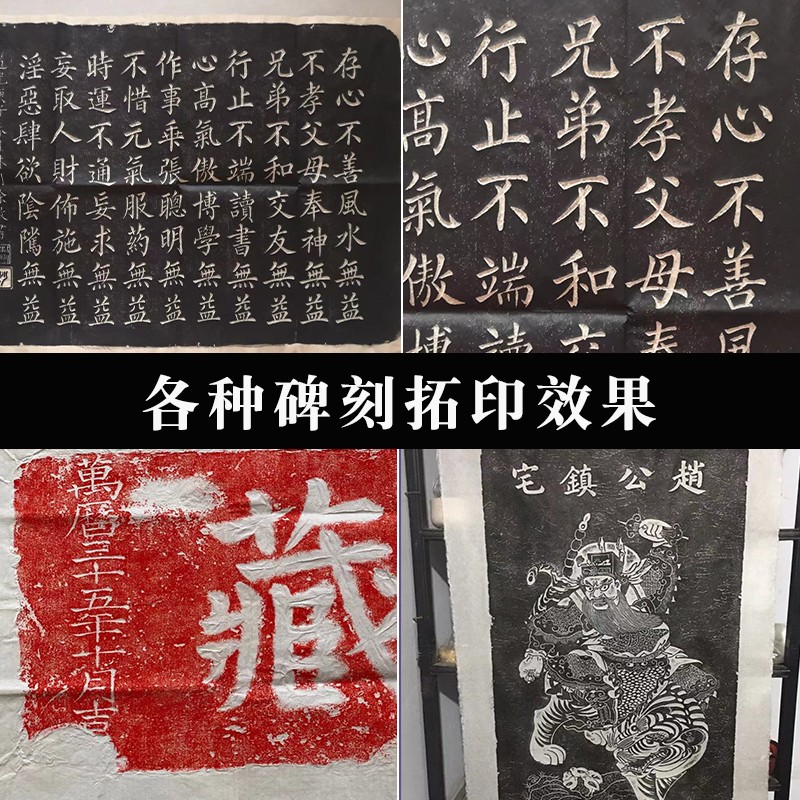 存心不善風水無益
不孝父母奉神無益
兄弟不和交友無益
行止不端讀書無益
心髙氣傲博學無益
作事乖張聰明無益
不惜元氣服药無益
時運不通妄求無益
妄取人財佈施無益
淫惡肆欲陰隲無益
存心不善風
不孝父母奉
兄弟不和交
行止不端讀
心髙氣傲博
各种碑刻拓印效果
藏
萬曆三十五年十月吉
趙公鎮宅